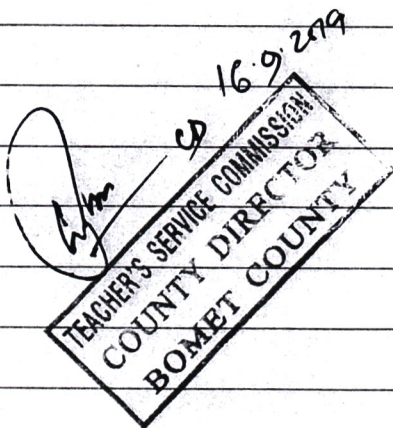 16.9.2019
CD
TEACHER'S SERVICE COMMISSION
COUNTY DIRECTOR
BOMET COUNTY